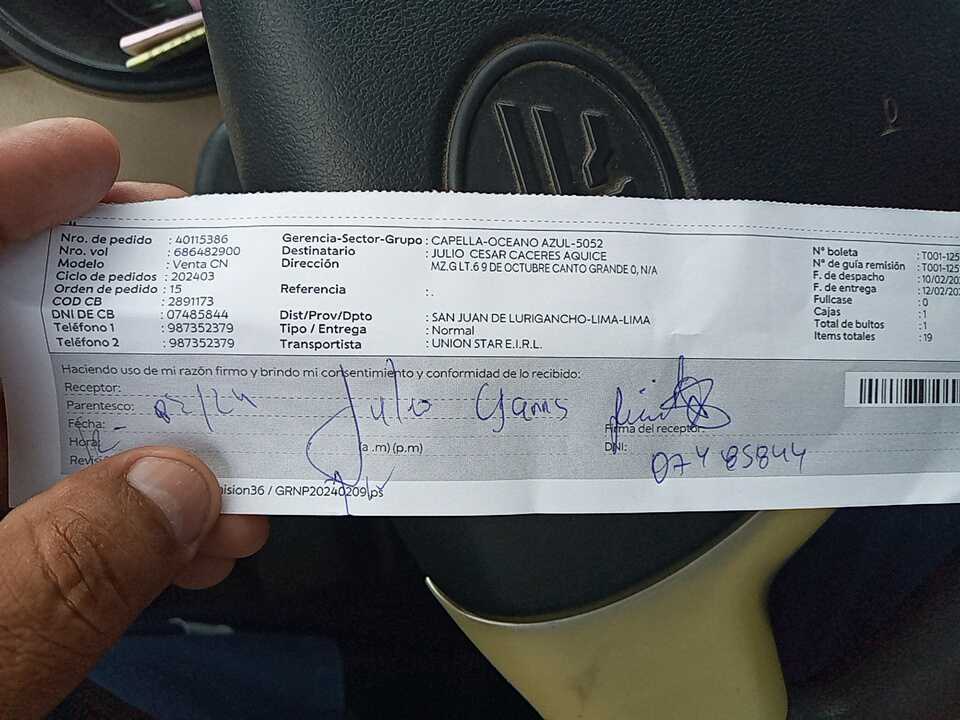 Nro. de pedido : 40115386
Nro. vol : 686482900
Modelo : Venta CN
Ciclo de pedidos : 202403
Orden de pedido : 15
COD CB : 2891173
DNI DE CB : 07485844
Teléfono 1 : 987352379
Teléfono 2 : 987352379
Gerencia-Sector-Grupo : CAPELLA-OCEANO AZUL-5052
Destinatario : JULIO CESAR CACERES AQUICE
Dirección MZ.G LT.6 9 DE OCTUBRE CANTO GRANDE 0, N/A
Referencia : .
Dist/Prov/Dpto : SAN JUAN DE LURIGANCHO-LIMA-LIMA
Tipo / Entrega : Normal
Transportista : UNION STAR E.I.R.L.
N° boleta : T001-125
N° de guía remisión : T001-125
F. de despacho : 10/02/20
F. de entrega : 12/02/20
Fullcase : 0
Cajas : 1
Total de bultos : 1
Items totales : 19
Haciendo uso de mi razón firmo y brindo mi consentimiento y conformidad de lo recibido:
Receptor: Julio
Parentesco:
Fecha:
Hora: (a .m) (p.m)
Firma del receptor:
DNI: 07485844
ision36 / GRNP20240209.ps